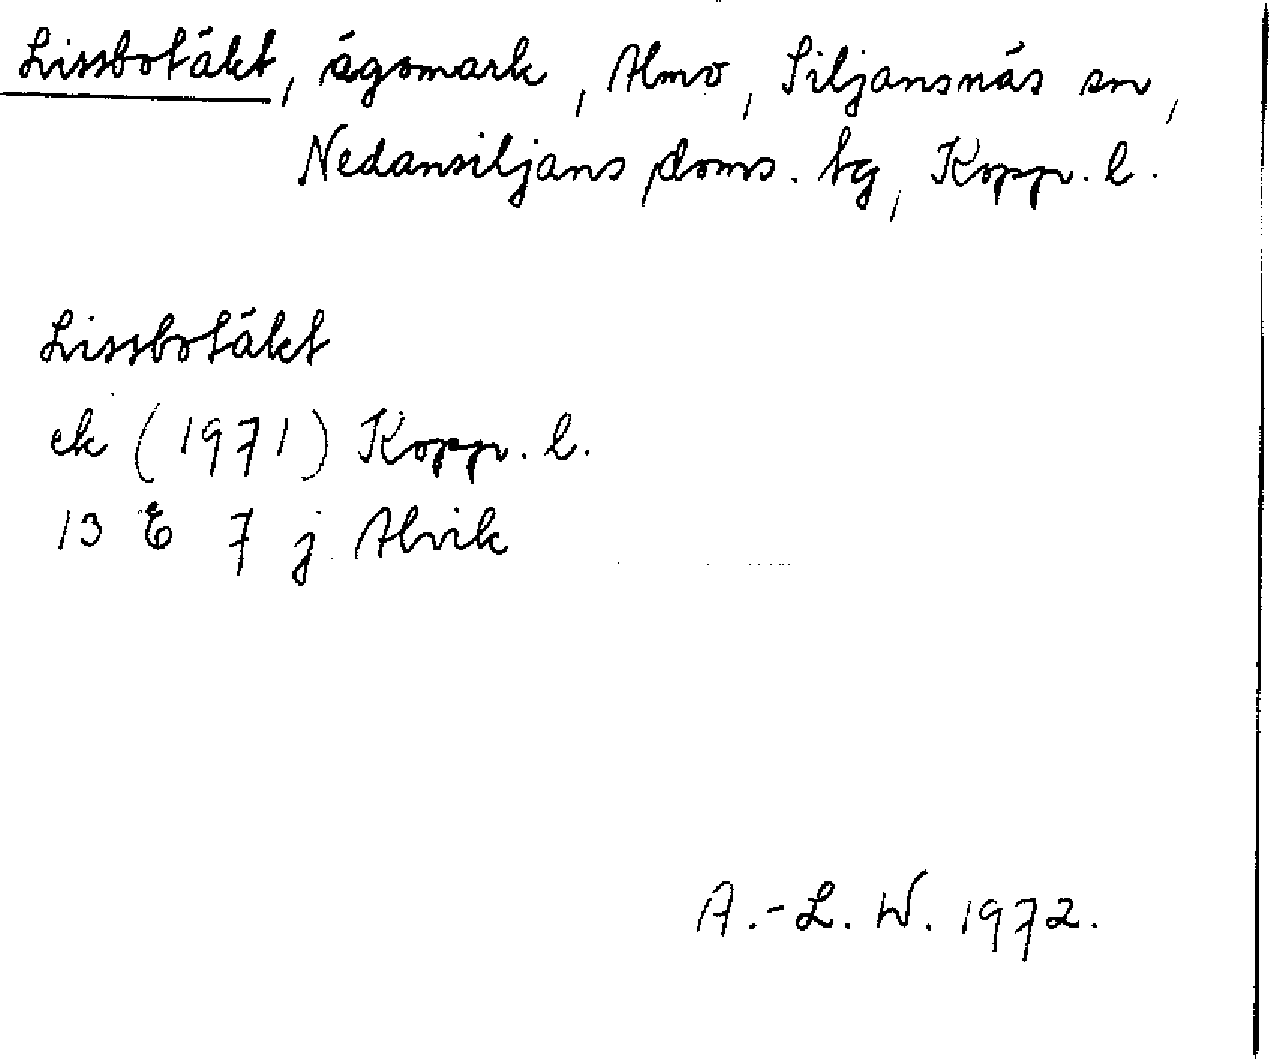 Lissbotäkt, ägomark, Almo, Siljansnäs sn,
Nedansiljans doms. tg, Kopp. l.
Lissbotäkt
ek (1971) Kopp. l.
13 E 7 j Alvik
A.-L. W. 1972.